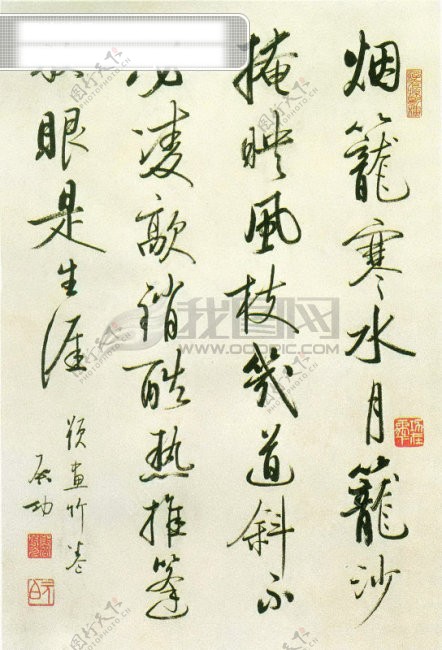 烟籠寒水月籠沙
掩映風枝幾道斜不
凌歊銷酷熱推篷
眼是生涯
題畫竹卷
启功
我图网
WWW.OOOPIC.COM
图行天下